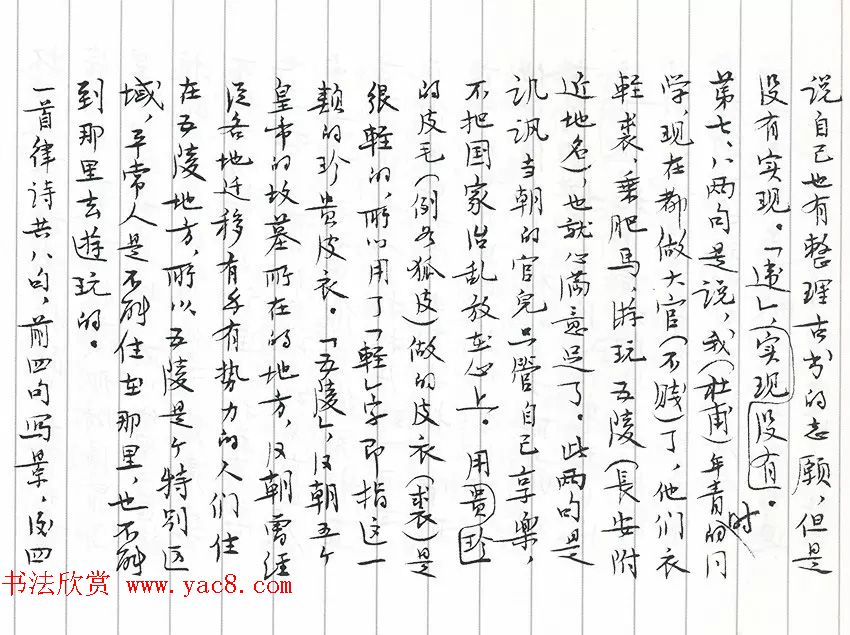 说自己也有整理古书的志愿，但是
没有实现。「违」，实现没有。
第七、八两句是说，我（杜甫）年青时的同
学，现在都做大官（不贱）了，他们衣
轻裘，乘肥马，游玩五陵（長安附
近地名），也就心满意足了。此两句是
讥讽当朝的官兒只管自己享樂，
不把国家治乱放在心上。用贵珍
的皮毛（例如狐皮）做的皮衣（裘）是
很軽的，所以用了「軽」字即指这一
類的珍贵皮衣。「五陵」，汉朝五个
皇帝的坟墓所在的地方，汉朝曾经
从各地迁移有手有势力的人们住
在五陵地方，所以五陵是个特别区
域，平常人是不能住在那里，也不能
到那里去游玩的。
一首律诗共八句，前四句写景，后四
书法欣赏 www.yac8.com